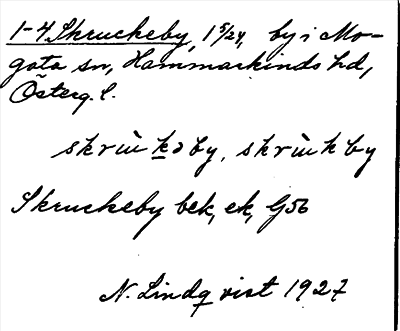 1-4 Skruckeby, 1 5/24, by i Mo-
gata sn, Hammarkinds hd,
Österg. l.
skrùkəby, skrùkby
Skruckeby bek, ek, G56
N. Lindqvist 1927